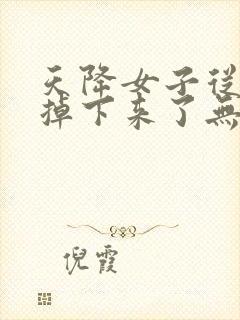 天降女子從
掉下来了無
倪霞